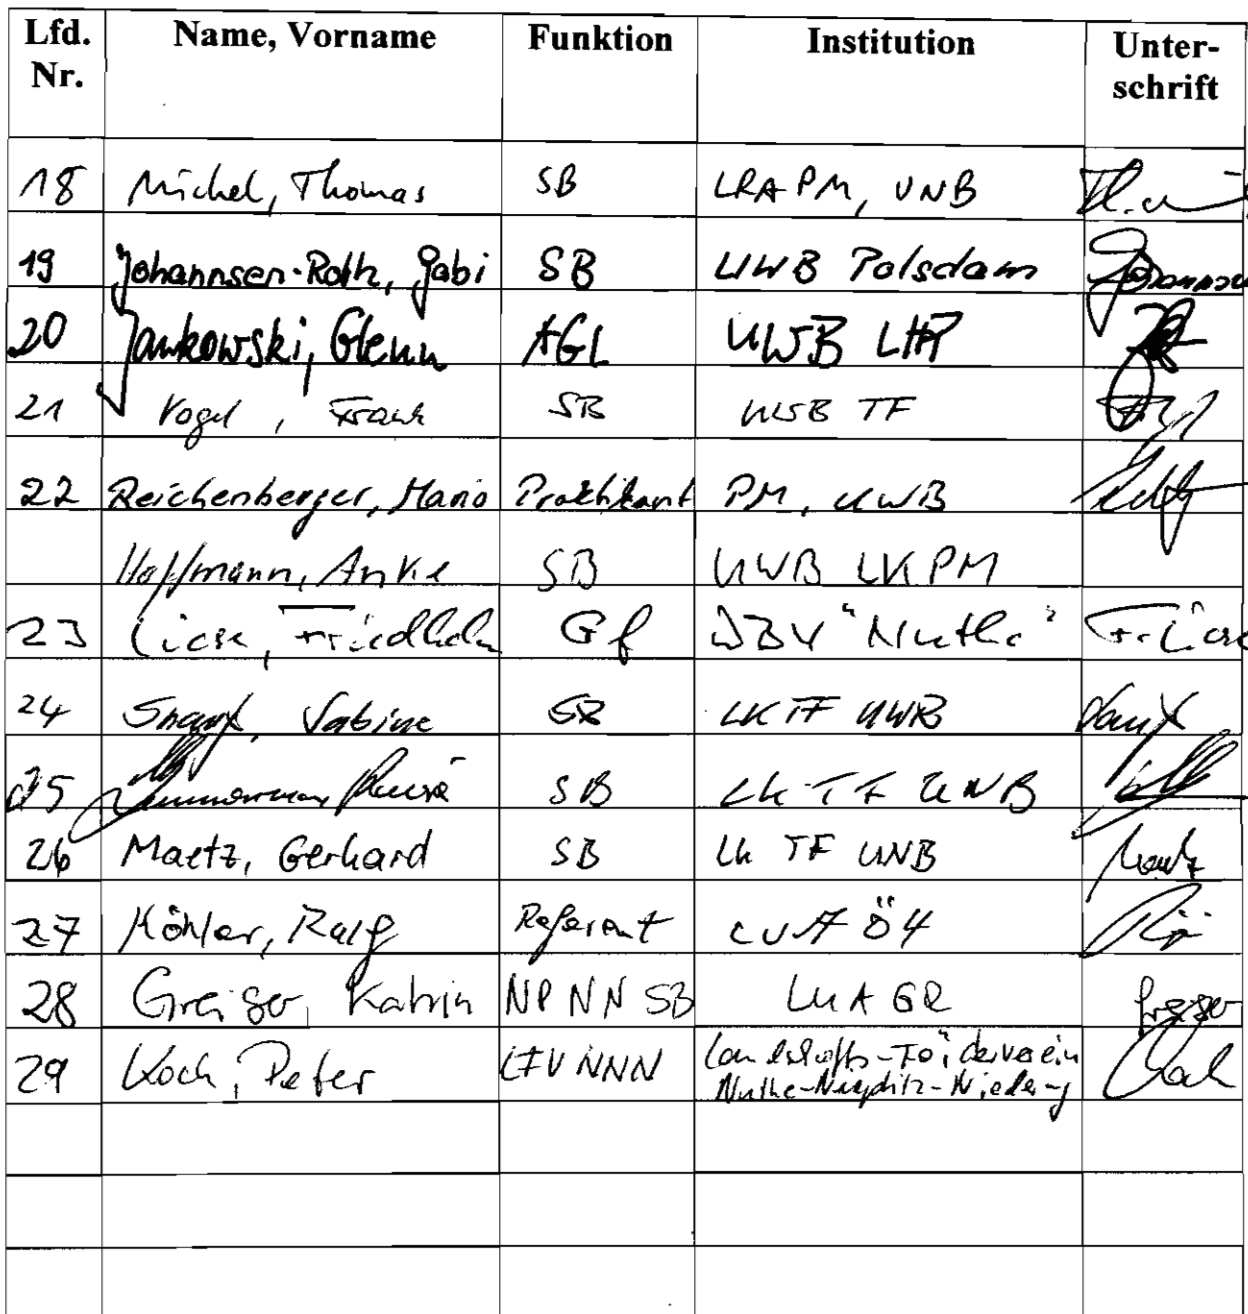 Lfd. Nr. Name, Vorname Funktion Institution Unter-schrift
18 Michel, Thomas SB LRA PM, UNB
19 Johannsen-Roth, Gabi SB UWB Potsdam
20 Jankowski, Glenn AGL UWB LHP
21 Vogel, Frank SB UWB TF
22 Reichenberger, Mario Praktikant PM, UWB
Hoffmann, Anke SB UWB LKPM
23 Liese, Friedhelm Gf WBV "Nuthe" F. Liese
24 Sabine SB LK TF UWB
25 Zimmermann SB LK TF UNB
26 Maetz, Gerhard SB LK TF UNB Maetz
27 Köhler, Ralf Referent LUA Ö4
28 Greiser, Katrin NP NN SB LUA GR Greiser
29 Koch, Peter LFV NNN Landschafts-Förderverein
Nuthe-Nieplitz-Niederung Koch